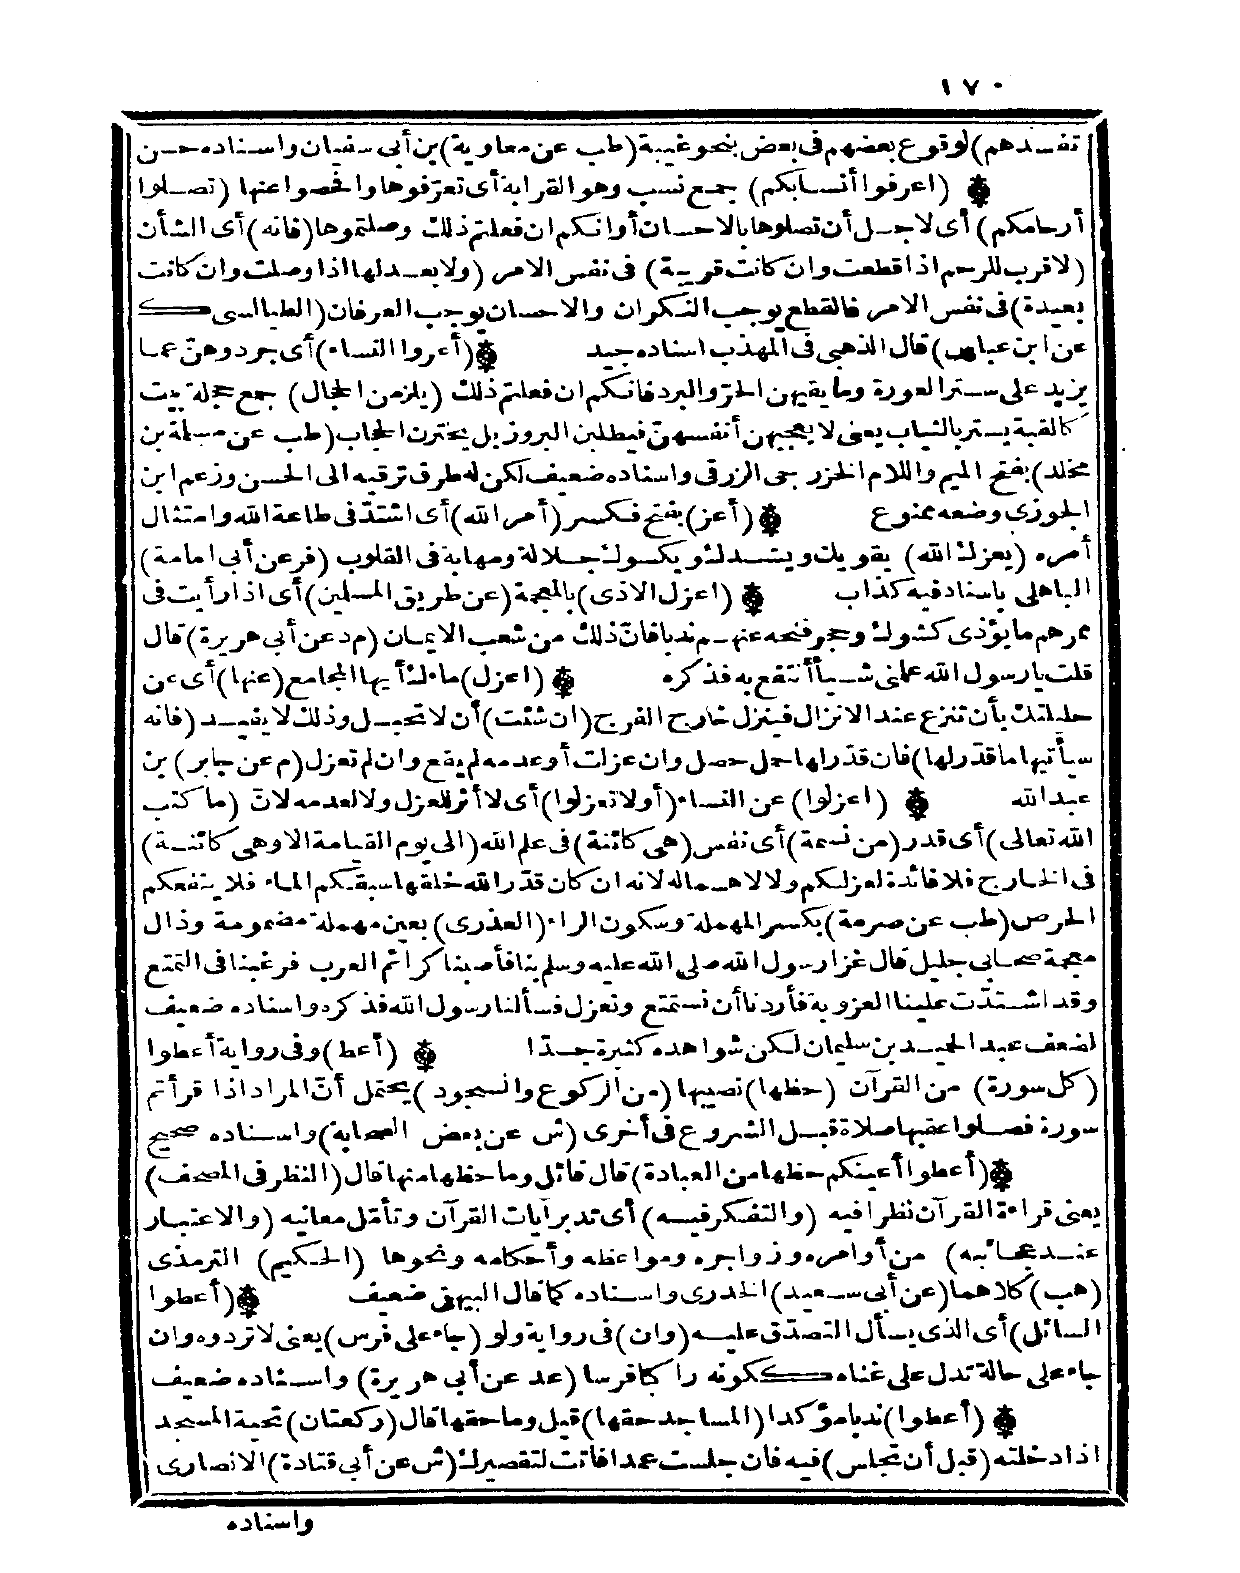 ١٧٠
تفسدهم) لوقوع بعضهم فى بعض بنحو غيبة (طب عن معاوية) بن أبى سفيان واسناده حسن
(اعرفوا أنسابكم) جمع نسب وهو القرابة أى تعرّفوها وافحصوا عنها (تصلوا
أرحامكم) أى لاجل أن تصلوها بالاحسان أو انكم ان فعلتم ذلك وصلتموها (فانه) أى الشأن
(لا قرب للرحم اذا قطعت وان كانت قريبة) فى نفس الامر (ولا بعد لها اذا وصلت وان كانت
بعيدة) فى نفس الامر فالقطع يوجب النكران والاحسان يوجب العرفان (الطيالسى ك
عن ابن عباس) قال الذهبى فى المهذب اسناده جيد (أعروا النساء) أى جردوهنّ عما
يزيد على ستر العورة وما يقيهن الحرّ والبرد فانكم ان فعلتم ذلك (يلزمن الحجال) جمع حجلة بيت
كالقبة يستر بالثياب يعنى لا يعجبهن أنفسهنّ فيطلبن البروز بل يخترن الحجاب (طب عن مسلمة بن
مخلد) بفتح الميم واللام الخزرجى الزرقى واسناده ضعيف لكن له طرق ترقيه الى الحسن وزعم ابن
الجوزى وضعه ممنوع (أعز) بفتح فكسر (أمر الله) أى اشتدّ فى طاعة الله وامتثال
أمره (يعزك الله) يقويك ويشددك ويكسوك جلالة ومهابة فى القلوب (فر عن أبى امامة)
الباهلى باسناد فيه كذاب (اعزل الاذى) بالمعجمة (عن طريق المسلمين) أى اذا رأيت فى
ممرهم ما يؤذى كشوك وحجر فنحه عنهم ندبا فانّ ذلك من شعب الايمان (م ه عن أبى هريرة) قال
قلت يا رسول الله علمنى شيأ أنتفع به فذكره (اعزل) ماءك أيها المجامع (عنها) أى عن
حليلتك بأن تنزع عند الانزال فينزل خارج الفرج (ان شئت) أن لا تحبل وذلك لا يفيد (فانه
سيأتيها ما قدر لها) فان قدر لها حمل حصل وان عزلت أو عدمه لم يقع وان لم تعزل (م عن جابر) بن
عبد الله (اعزلوا) عن النساء (أو لا تعزلوا) أى لا أثر للعزل ولا لعدمه لانّ (ما كتب
الله تعالى) أى قدر (من نسمة) أى نفس (هى كائنة) فى علم الله (الى يوم القيامة الا وهى كائنة)
فى الخارج فلا فائدة لعزلكم ولا لاهماله لانه ان كان قدّر الله خلقها سبقكم الماء فلا ينفعكم
الحرص (طب عن صرمة) بكسر المهملة وسكون الراء (العذرى) بعين مهملة مضمومة وذال
معجمة صحابى جليل قال غزا رسول الله صلى الله عليه وسلم بنا فأصبنا كرائم العرب فرغبنا فى التمتع
وقد اشتدّت علينا العزوبة فأردنا أن نستمتع ونعزل فسألنا رسول الله فذكره واسناده ضعيف
لضعف عبد الحميد بن سليمان لكن شواهده كثيرة جدّا (أعط) وفى رواية أعطوا
(كل سورة) من القرآن (حظها) نصيبها (من الركوع والسجود) يحتمل أنّ المراد اذا قرأتم
سورة فصلوا عقبها صلاة قبل الشروع فى أخرى (ش عن بعض الصحابة) واسناده صحيح
(أعطوا أعينكم حظها من العبادة) قال قائل وما حظها منها قال (النظر فى المصحف)
يعنى قراءة القرآن نظرا فيه (والتفكر فيه) أى تدبر آيات القرآن وتأمّل معانيه (والاعتبار
عند عجائبه) من أوامره وزواجره ومواعظه وأحكامه ونحوها (الحكيم) الترمذى
(هب) كلاهما (عن أبى سعيد) الخدرى واسناده كما قال البيهقى ضعيف (أعطوا
السائل) أى الذى يسأل التصدّق عليه (وان) فى رواية ولو (جاء على فرس) يعنى لا تردوه وان
جاء على حالة تدل على غناه ككونه راكبا فرسا (عد عن أبى هريرة) واسناده ضعيف
(أعطوا) ندبا مؤكدا (المساجد حقها) قيل وما حقها قال (ركعتان) تحية المسجد
اذا دخلته (قبل أن تجلس) فيه فان جلست عمدا فاتت لتقصيرك (ش عن أبى قتادة) الانصارى
واسناده